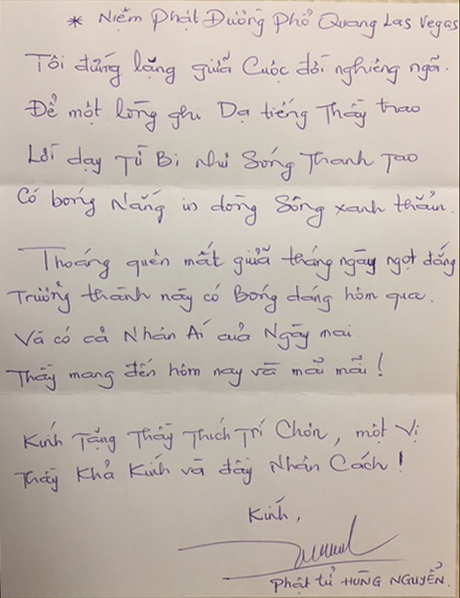 * Niệm Phật Đường Phổ Quang Las Vegas
Tôi đứng lặng giữa Cuộc đời nghiêng ngã.
Để một lòng ghi Dạ tiếng Thầy trao
Lời dạy Từ Bi như Sóng Thanh Tao
Có bóng Nắng in dòng Sông xanh thẳm.
Thoáng quên mất giữa tháng ngày ngọt đắng
Trưởng thành này có Bóng dáng hôm qua.
Và có cả Nhân Ái của Ngày mai.
Thầy mang đến hôm nay và mãi mãi!
Kính Tặng Thầy Thích Trí Chơn, một Vị
Thầy Khả Kính và đầy Nhân Cách!
Kính,
Phật tử HÙNG NGUYỄN.